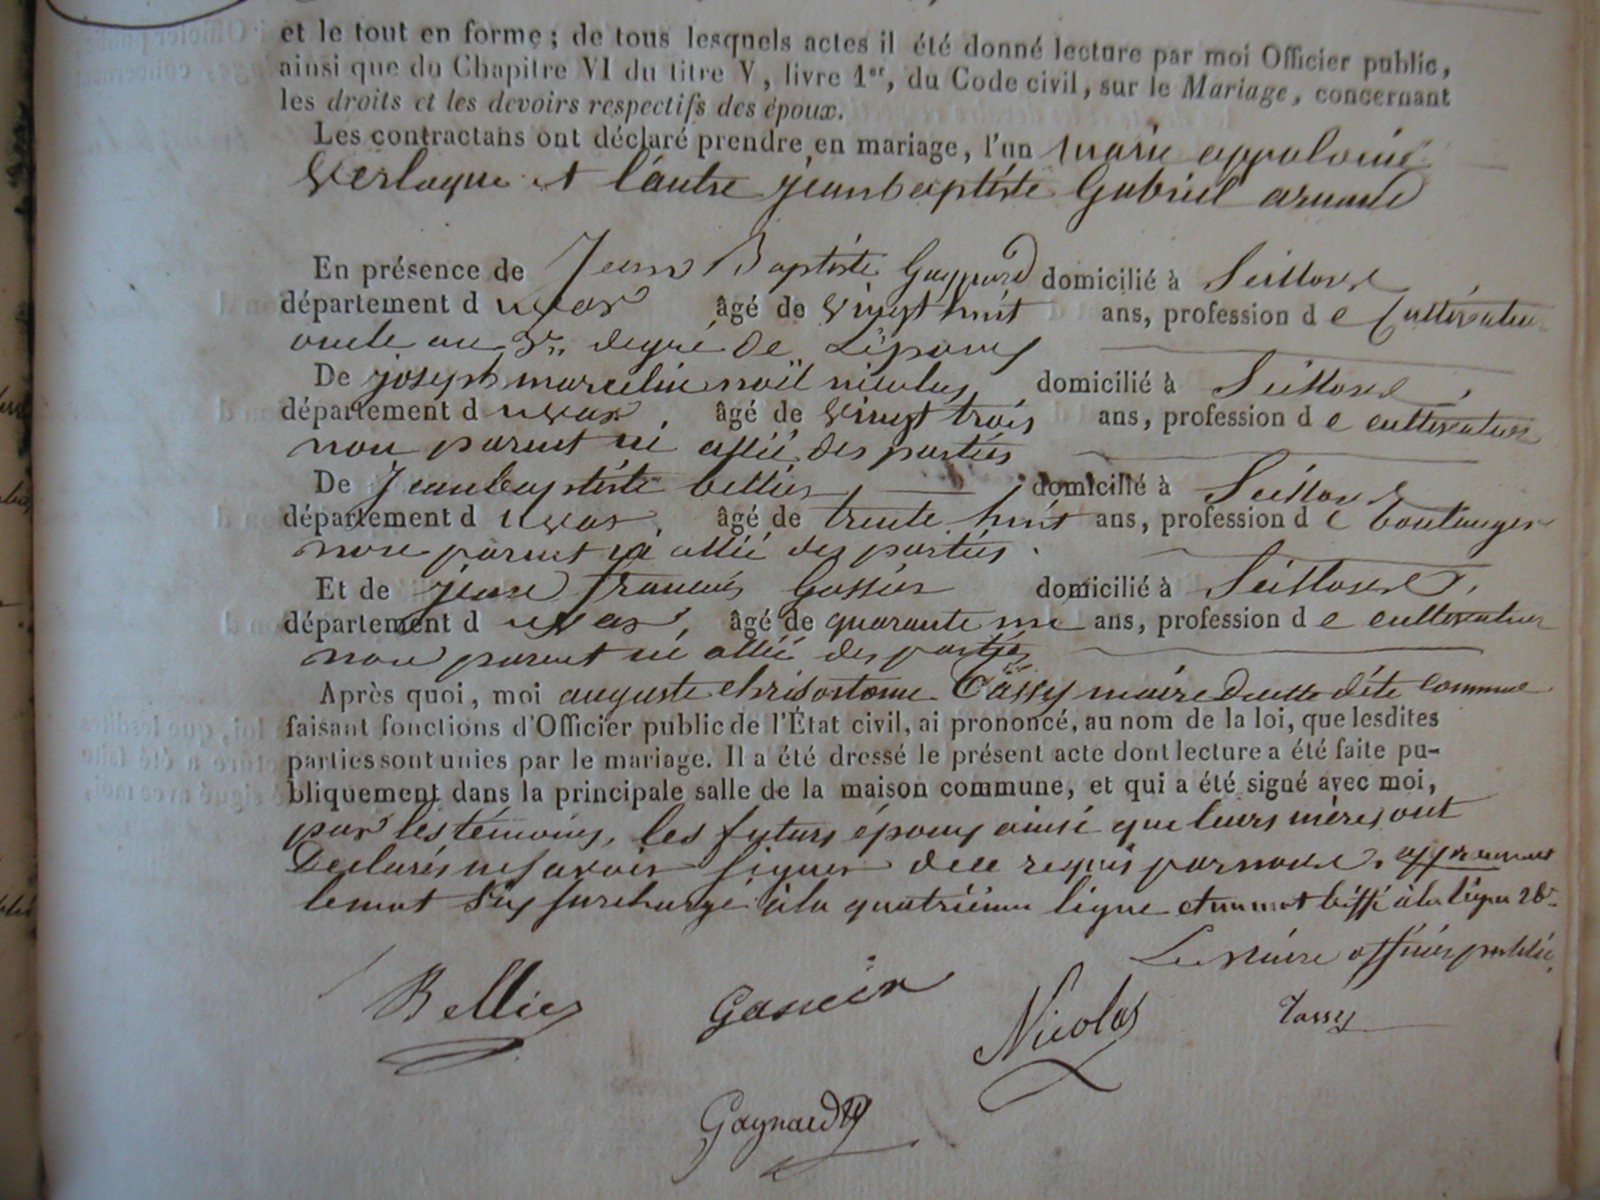 et le tout en forme ; de tous lesquels actes il été donné lecture par moi Officier public,
ainsi que du Chapitre VI du titre V, livre 1er, du Code civil, sur le Mariage, concernant
les droits et les devoirs respectifs des époux.
Les contractans ont déclaré prendre en mariage, l'un marie appolonie
Verlaque et l'autre jeanbaptiste Gabriel arnaud
En présence de Jean Baptiste Gaynard domicilié à Seillans
département d u var âgé de vingt huit ans, profession d e Cultivateur
oncle au 3me degré de L'épouse
De joseph marcelin noël nicolas domicilié à Seillans,
département d u var, âgé de vingt trois ans, profession d e cultivateur
non parent ni allié des parties
De Jeanbaptiste bellier domicilié à Seillans
département d u var, âgé de trente huit ans, profession d e boulanger
non parent ni allié des parties.
Et de jean francois Gassier domicilié à Seillans,
département d u var, âgé de quarante un ans, profession d e cultivateur
non parent ni allié des parties
Après quoi, moi auguste chrisostome Tassy maire de cette dite commune
faisant fonctions d'Officier public de l'État civil, ai prononcé, au nom de la loi, que lesdites
parties sont unies par le mariage. Il a été dressé le présent acte dont lecture a été faite pu-
bliquement dans la principale salle de la maison commune, et qui a été signé avec moi,
par les témoins, les futurs époux ainsi que leurs mères ont
Declarés ne savoir signer de ce requis par nous. approuvant
le mot Six surchargé à la quatrième ligne et un mot biffé à la ligne 28e
Le Maire officier public,
Bellier Gassier Nicolas Tassy
Gaynard